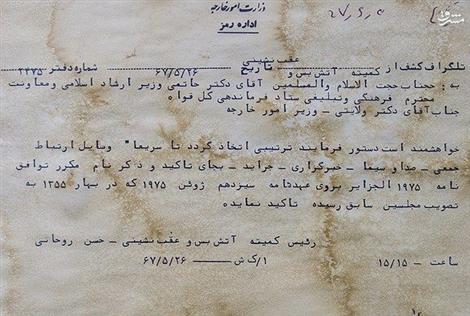 وزارت امور خارجه
اداره رمز
۲۷ر۵ر۵
مشرق
تلگراف کشف از کمیته آتش بس و عقب نشینی تاریخ ۶۷/۵/۲۶ شماره دفتر ۲۲۷۵
به : جناب حجت الاسلام والمسلمین آقای دکتر خاتمی وزیر ارشاد اسلامی ومعاونت
محترم فرهنگی وتبلیغی ستاد فرماندهی کل قواه
جناب آقای دکتر ولایتی – وزیر امور خارجه
خواهشمند است دستور فرمایند ترتیبی اتخاذ گردد تا سریعا" وسایل ارتباط
جمعی – صدا و سیما – خبرگزاری – جراید – بجای تاکید و ذکر نام مکرر توافق
نامه ۱۹۷۵ الجزایر بروی عهدنامه سیزدهم ژوئن ۱۹۷۵ که در بهار ۱۳۵۵ به
تصویب مجلسین سابق رسیده تاکید نمایده
رئیس کمیته آتش بس و عقب نشینی – حسن روحانی
ساعت – ۱۵/۱۵ ۱/ک ش – ۶۷/۵/۲۶